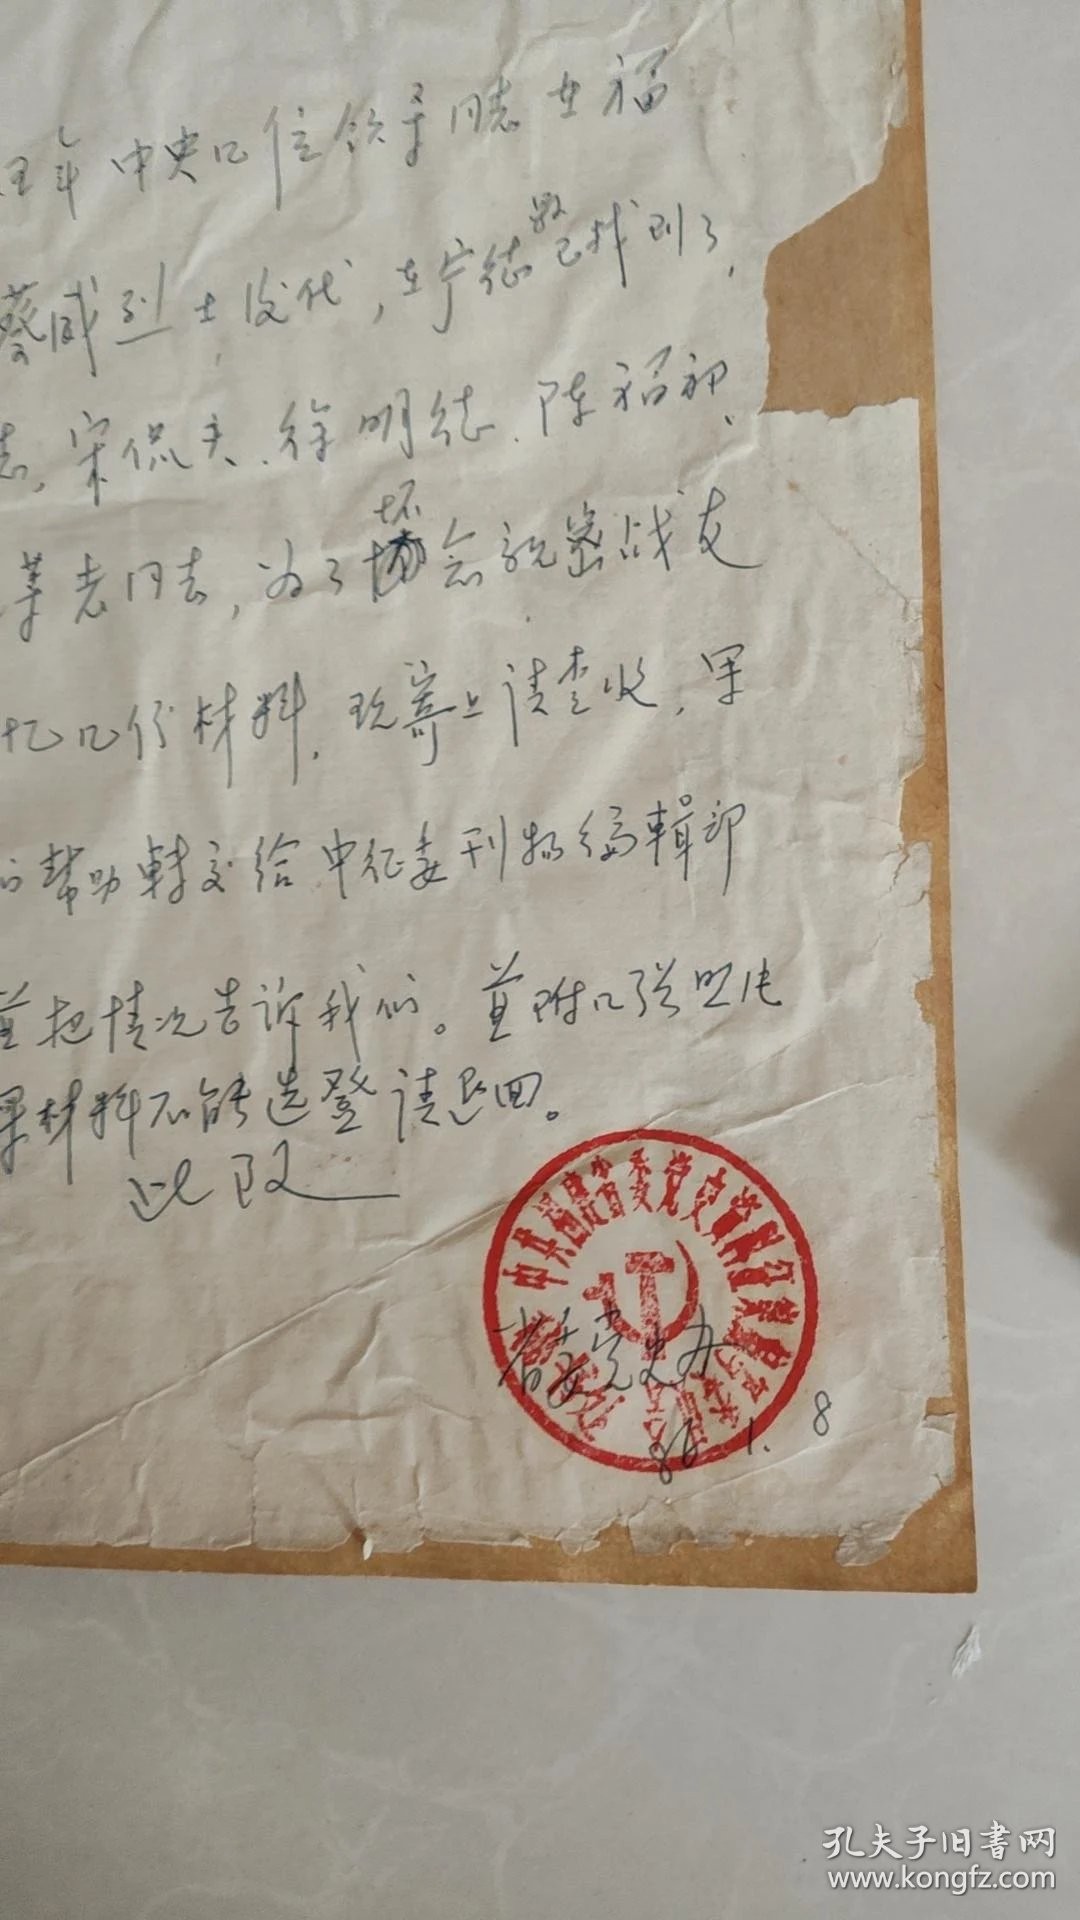 年中央几位领导同志在福
蔡威烈士后代,在宁德已找到了,
志,宋侃夫、徐明德、陈福初、
等老同志,为了怀念机密战友
忆几份材料,现寄上请查收,如果
的帮助转交给中征委刊物编辑部
并把情况告诉我们。并附几张照片
果材料不能选登请退回。
此致
中共福建省委党史资料征集
省委党史办
86.1.8
孔夫子旧书网
www.kongfz.com